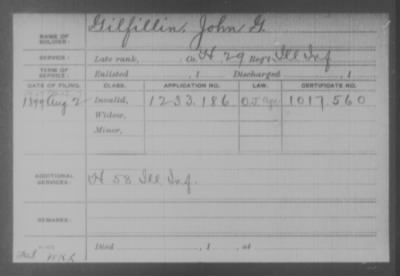 NAME OF SOLDIER: Gilfillin, John G.
SERVICE: Late rank, Co. H, 29 Reg't Ill Inf
TERM OF SERVICE: Enlisted , 1 Discharged , 1
DATE OF FILING. CLASS. APPLICATION NO. LAW. CERTIFICATE NO.
1899 Aug 2 Invalid, 1233,186 1017,560
Widow,
Minor,
ADDITIONAL SERVICES: H 58 Ill Inf.
REMARKS:
Died , 1 , at